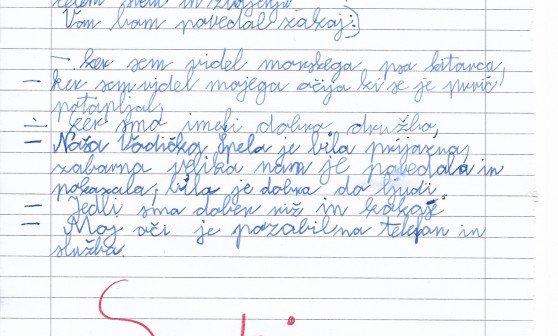 Vam bom povedal zakaj:
- ker sem videl morskega psa kitovca,
- ker sem videl mojega očija ki se je prvič
potapljal,
- ker smo imeli dobro družbo,
- Naša Vodička Špela je bila prijazna,
zabavna veliko nam je povedala in
pokazala, bila je dobra do ljudi,
- Jedli smo dober riž in kakaje
- Moj oči je pozabil na telefon in
službo.